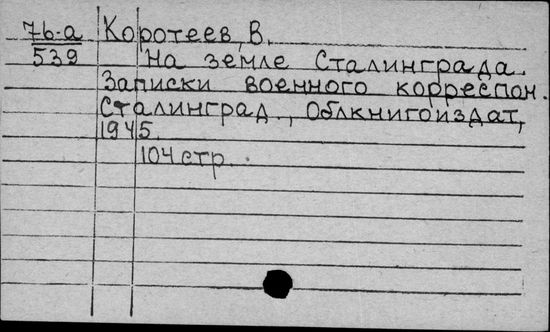 7б-а Коротеев, В.
539 На земле Сталинграда.
Записки военного корреспон.
Сталинград., Облкнигоиздат,
1945.
104 стр.